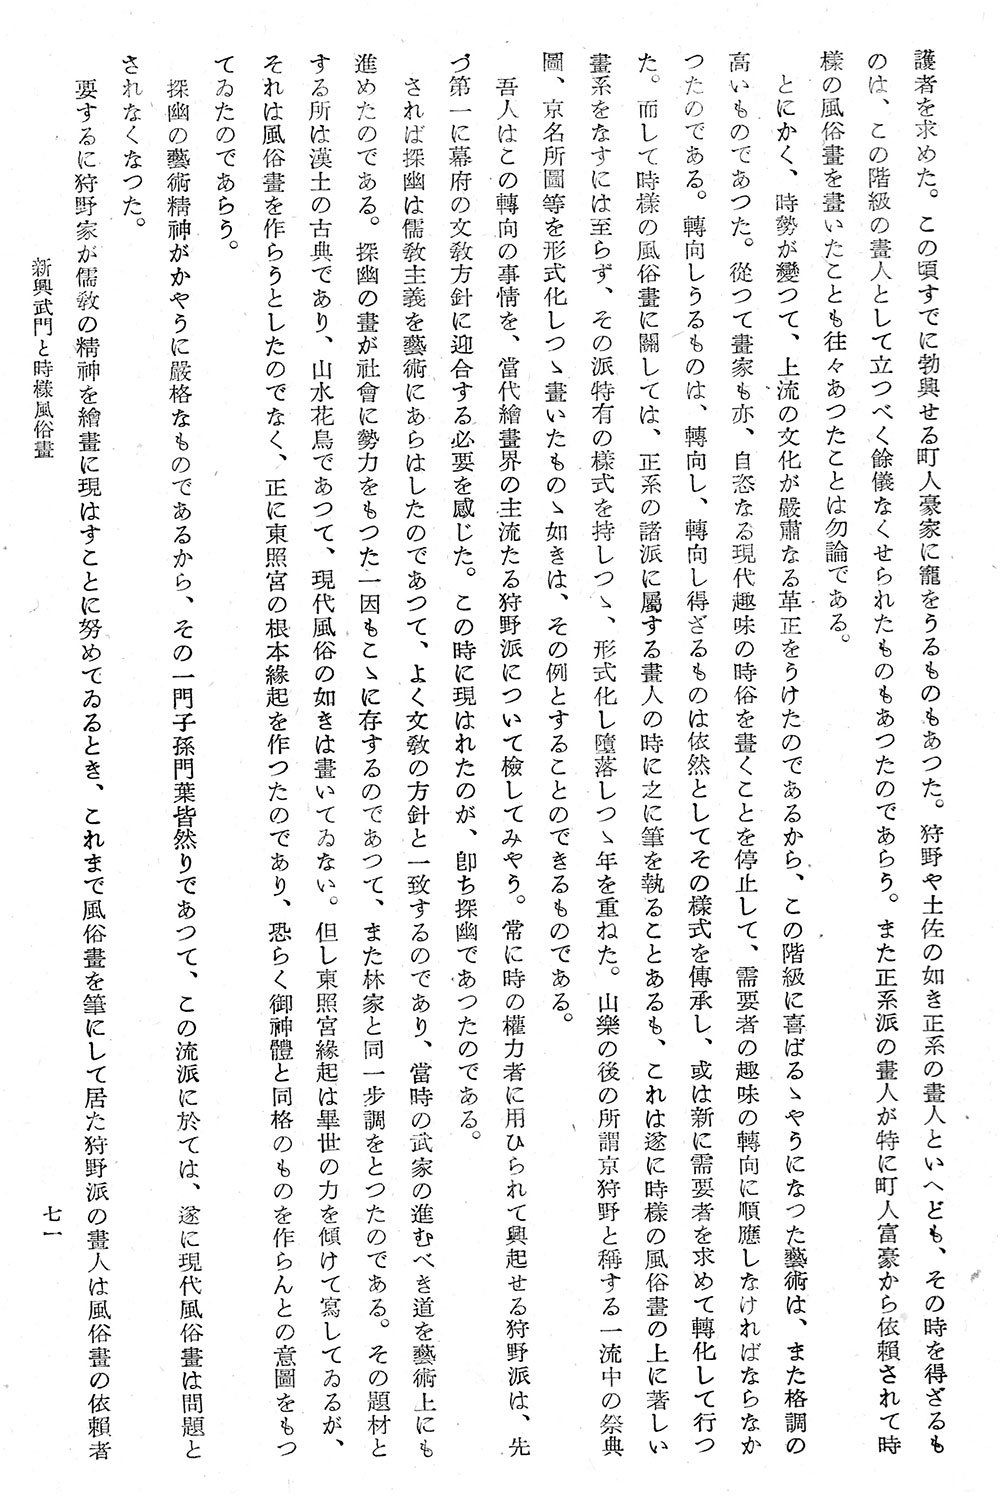 護者を求めた。この頃すでに勃興せる町人豪家に寵をうるものもあつた。狩野や土佐の如き正系の畫人といへども、その時を得ざるも
のは、この階級の畫人として立つべく餘儀なくせられたものもあつたのであらう。また正系派の畫人が特に町人富豪から依賴されて時
樣の風俗畫を畫いたことも往々あつたことは勿論である。
とにかく、時勢が變つて、上流の文化が嚴肅なる革正をうけたのであるから、この階級に喜ばるゝやうになつた藝術は、また格調の
高いものであつた。從つて畫家も亦、自恣なる現代趣味の時俗を畫くことを停止して、需要者の趣味の轉向に順應しなければならなか
つたのである。轉向しうるものは、轉向し、轉向し得ざるものは依然としてその樣式を傳承し、或は新に需要者を求めて轉化して行つ
た。而して時樣の風俗畫に關しては、正系の諸派に屬する畫人の時に之に筆を執ることあるも、これは遂に時樣の風俗畫の上に著しい
畫系をなすには至らず、その派特有の樣式を持しつゝ、形式化し墮落しつゝ年を重ねた。山樂の後の所謂京狩野と稱する一流中の祭典
圖、京名所圖等を形式化しつゝ畫いたものゝ如きは、その例とすることのできるものである。
吾人はこの轉向の事情を、當代繪畫界の主流たる狩野派について檢してみやう。常に時の權力者に用ひられて興起せる狩野派は、先
づ第一に幕府の文敎方針に迎合する必要を感じた。この時に現はれたのが、卽ち探幽であつたのである。
されば探幽は儒敎主義を藝術にあらはしたのであつて、よく文敎の方針と一致するのであり、當時の武家の進むべき道を藝術上にも
進めたのである。探幽の畫が社會に勢力をもつた一因もこゝに存するのであつて、また林家と同一步調をとつたのである。その題材と
する所は漢土の古典であり、山水花鳥であつて、現代風俗の如きは畫いてゐない。但し東照宮緣起は畢世の力を傾けて寫してゐるが、
それは風俗畫を作らうとしたのでなく、正に東照宮の根本緣起を作つたのであり、恐らく御神體と同格のものを作らんとの意圖をもつ
てゐたのであらう。
探幽の藝術精神がかやうに嚴格なものであるから、その一門子孫門葉皆然りであつて、この流派に於ては、遂に現代風俗畫は問題と
されなくなつた。
要するに狩野家が儒敎の精神を繪畫に現はすことに努めてゐるとき、これまで風俗畫を筆にして居た狩野派の畫人は風俗畫の依賴者
新興武門と時樣風俗畫
七一